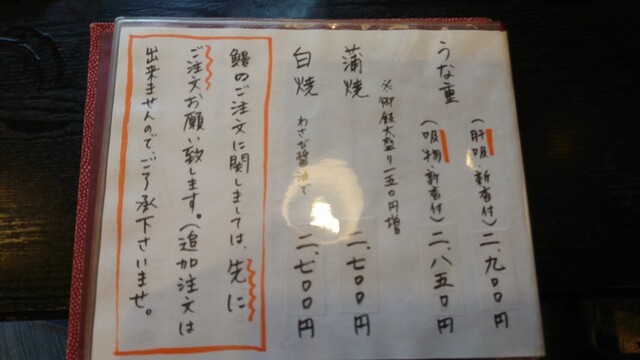 （肝吸、新香付）二、九〇〇円
うな重
（吸物、新香付）二、八五〇円
※御飯大盛り一五〇円増
蒲焼 二、七〇〇円
白焼 わさび醤油で 二、七〇〇円
鰻のご注文に関しましては、先に
ご注文お願い致します。（追加注文は
出来ませんので、ご了承下さいませ。